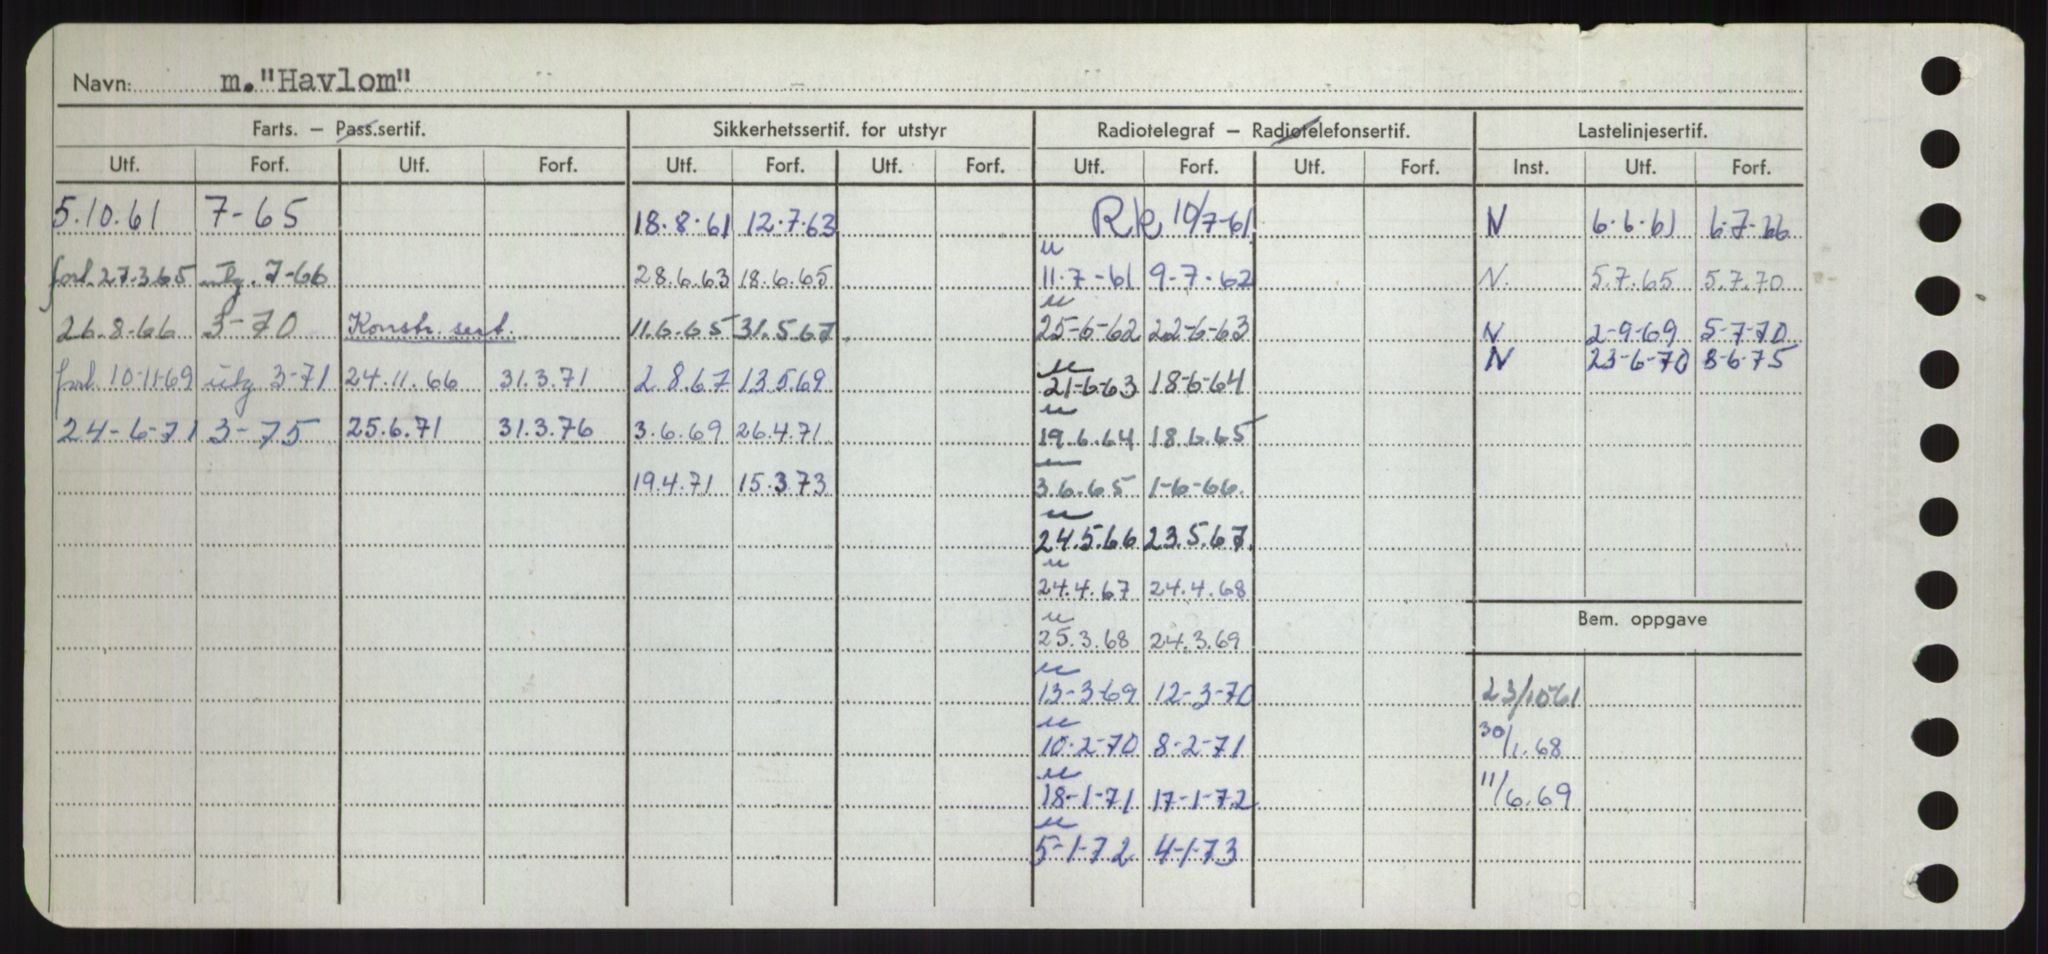 Navn: m."Havlom"
Farts. – Pass.sertif. Sikkerhetssertif. for utstyr Radiotelegraf – Radiotelefonsertif. Lastelinjesertif.
Utf. Forf. Utf. Forf. Utf. Forf. Utf. Forf. Utf. Forf. Utf. Forf. Inst. Utf. Forf.
5.10.61 7-65 18.8.61 12.7.63 Rk 10/7-61 N 6.6.61 6.7-66
u
forl. 27.3.65 utg. 7-66 28.6.63 18.6.65 11.7-61 9-7.62 N. 5.7.65 5.7.70
u
26.8.66 3-70 Konstr. sert. 11.6.65 31.5.67. 25-6-62 22-6-63 N 2-9-69 5-7-70
N 23-6-70 8-6-75
u
forl. 10-11-69 utg 3-71 24.11.66 31.3.71 2.8.67 13.5.69 21-6-63 18-6-64
u
24-6-71 3-75 25.6.71 31.3.76 3.6.69 26.4.71 19.6.64 18.6.65
u
19.4.71 15.3.73 3.6.65 1-6-66.
u
24.5.66 23.5.67.
u
24.4.67 24.4.68
u
25.3.68 24.3.69
Bem. oppgave
u
13-3-69 12-3-70 23/10-61
u
10-2-70 8-2-71 30/1.68
u
18-1-71 17-1-72 11/6.69
u
5-1-72 4-1-73